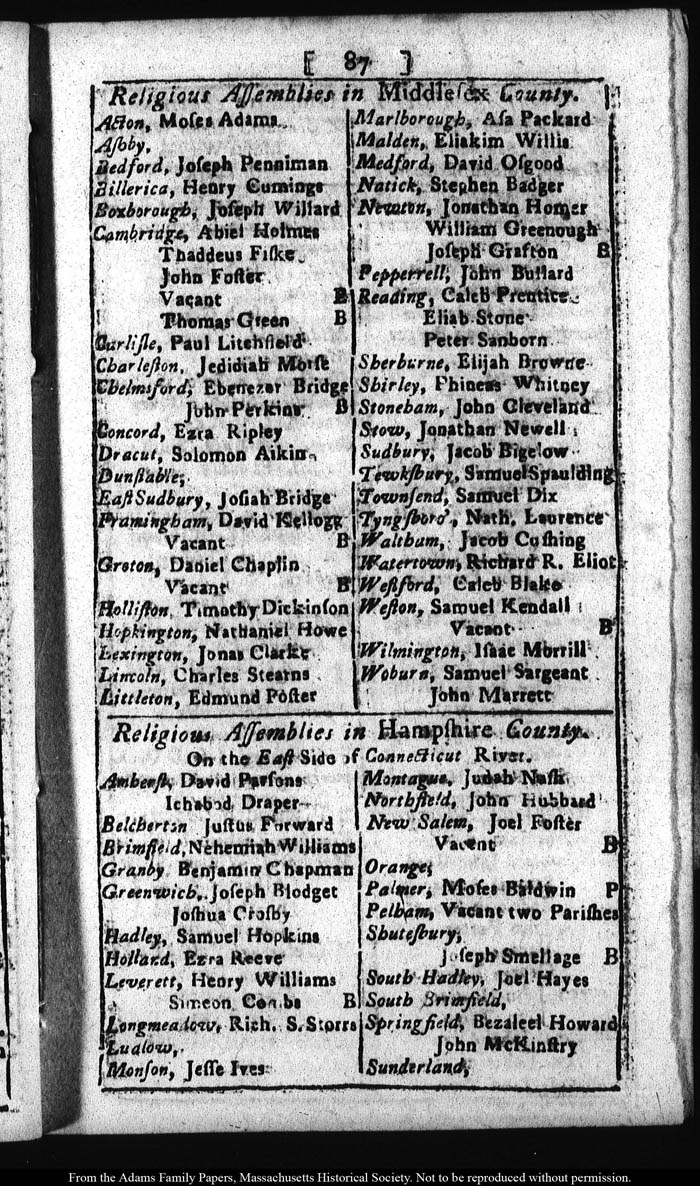 [ 87 ]
Religious Aſſemblies in Middleſex County.
Acton, Moſes Adams
Aſhby,
Bedford, Joſeph Penniman
Billerica, Henry Cumings
Boxborough, Joſeph Willard
Cambridge, Abiel Holmes
Thaddeus Fiſke
John Foſter
Vacant B
Thomas Green B
Carliſle, Paul Litchfield
Charleſton, Jedidiah Morſe
Chelmsford, Ebenezer Bridge
John Perkins B
Concord, Ezra Ripley
Dracut, Solomon Aikin
Dunſtable,
Eaſt Sudbury, Joſiah Bridge
Framingham, David Kellogg
Vacant B
Groton, Daniel Chaplin
Vacant B
Holliſton, Timothy Dickinſon
Hopkington, Nathaniel Howe
Lexington, Jonas Clarke
Lincoln, Charles Stearns
Littleton, Edmund Foſter
Marlborough, Aſa Packard
Malden, Eliakim Willis
Medford, David Oſgood
Natick, Stephen Badger
Newton, Jonathan Homer
William Greenough
Joſeph Grafton B
Pepperrell, John Bullard
Reading, Caleb Prentice
Eliab Stone
Peter Sanborn
Sherburne, Elijah Browne
Shirley, Phineas Whitney
Stoneham, John Cleveland
Stow, Jonathan Newell
Sudbury, Jacob Bigelow
Tewkſbury, Samuel Spaulding
Townſend, Samuel Dix
Tyngſboro', Nath. Laurence
Waltham, Jacob Cuſhing
Watertown, Richard R. Eliot
Weſtford, Caleb Blake
Weſton, Samuel Kendall
Vacant B
Wilmington, Iſaac Morrill
Woburn, Samuel Sargeant
John Marrett
Religious Aſſemblies in Hampſhire County.
On the Eaſt Side of Connecticut River.
Amherſt, David Parſons
Ichabod Draper
Belcherton Juſtus Forward
Brimfield, Nehemiah Williams
Granby Benjamin Chapman
Greenwich, Joſeph Blodget
Joſhua Croſby
Hadley, Samuel Hopkins
Holland, Ezra Reeve
Leverett, Henry Williams
Simeon Combs B
Longmeadow, Rich. S. Storrs
Ludlow,
Monſon, Jeſſe Ives
Montague, Judah Naſh
Northfield, John Hubbard
New Salem, Joel Foſter
Vacent B
Orange,
Palmer, Moſes Baldwin P
Pelham, Vacant two Pariſhes
Shuteſbury,
Joſeph Smellage B
South Hadley, Joel Hayes
South Brimfield,
Springfield, Bezaleel Howard
John McKinſtry
Sunderland,
From the Adams Family Papers, Massachusetts Historical Society. Not to be reproduced without permission.